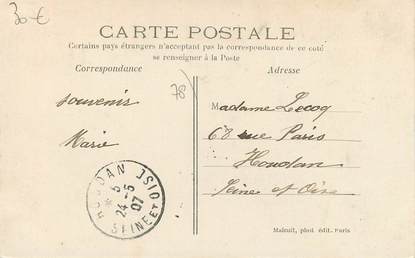 30 €
CARTE POSTALE
Certains pays étrangers n'acceptant pas la correspondance de ce coté
se renseigner à la Poste
Correspondance
Adresse
78
souvenirs
Marie
Madame Lecoq
68 rue Paris
Houdan
Seine et Oise
HOUDAN
5
24-5
07
SEINE ET OISE
phot édit. Paris